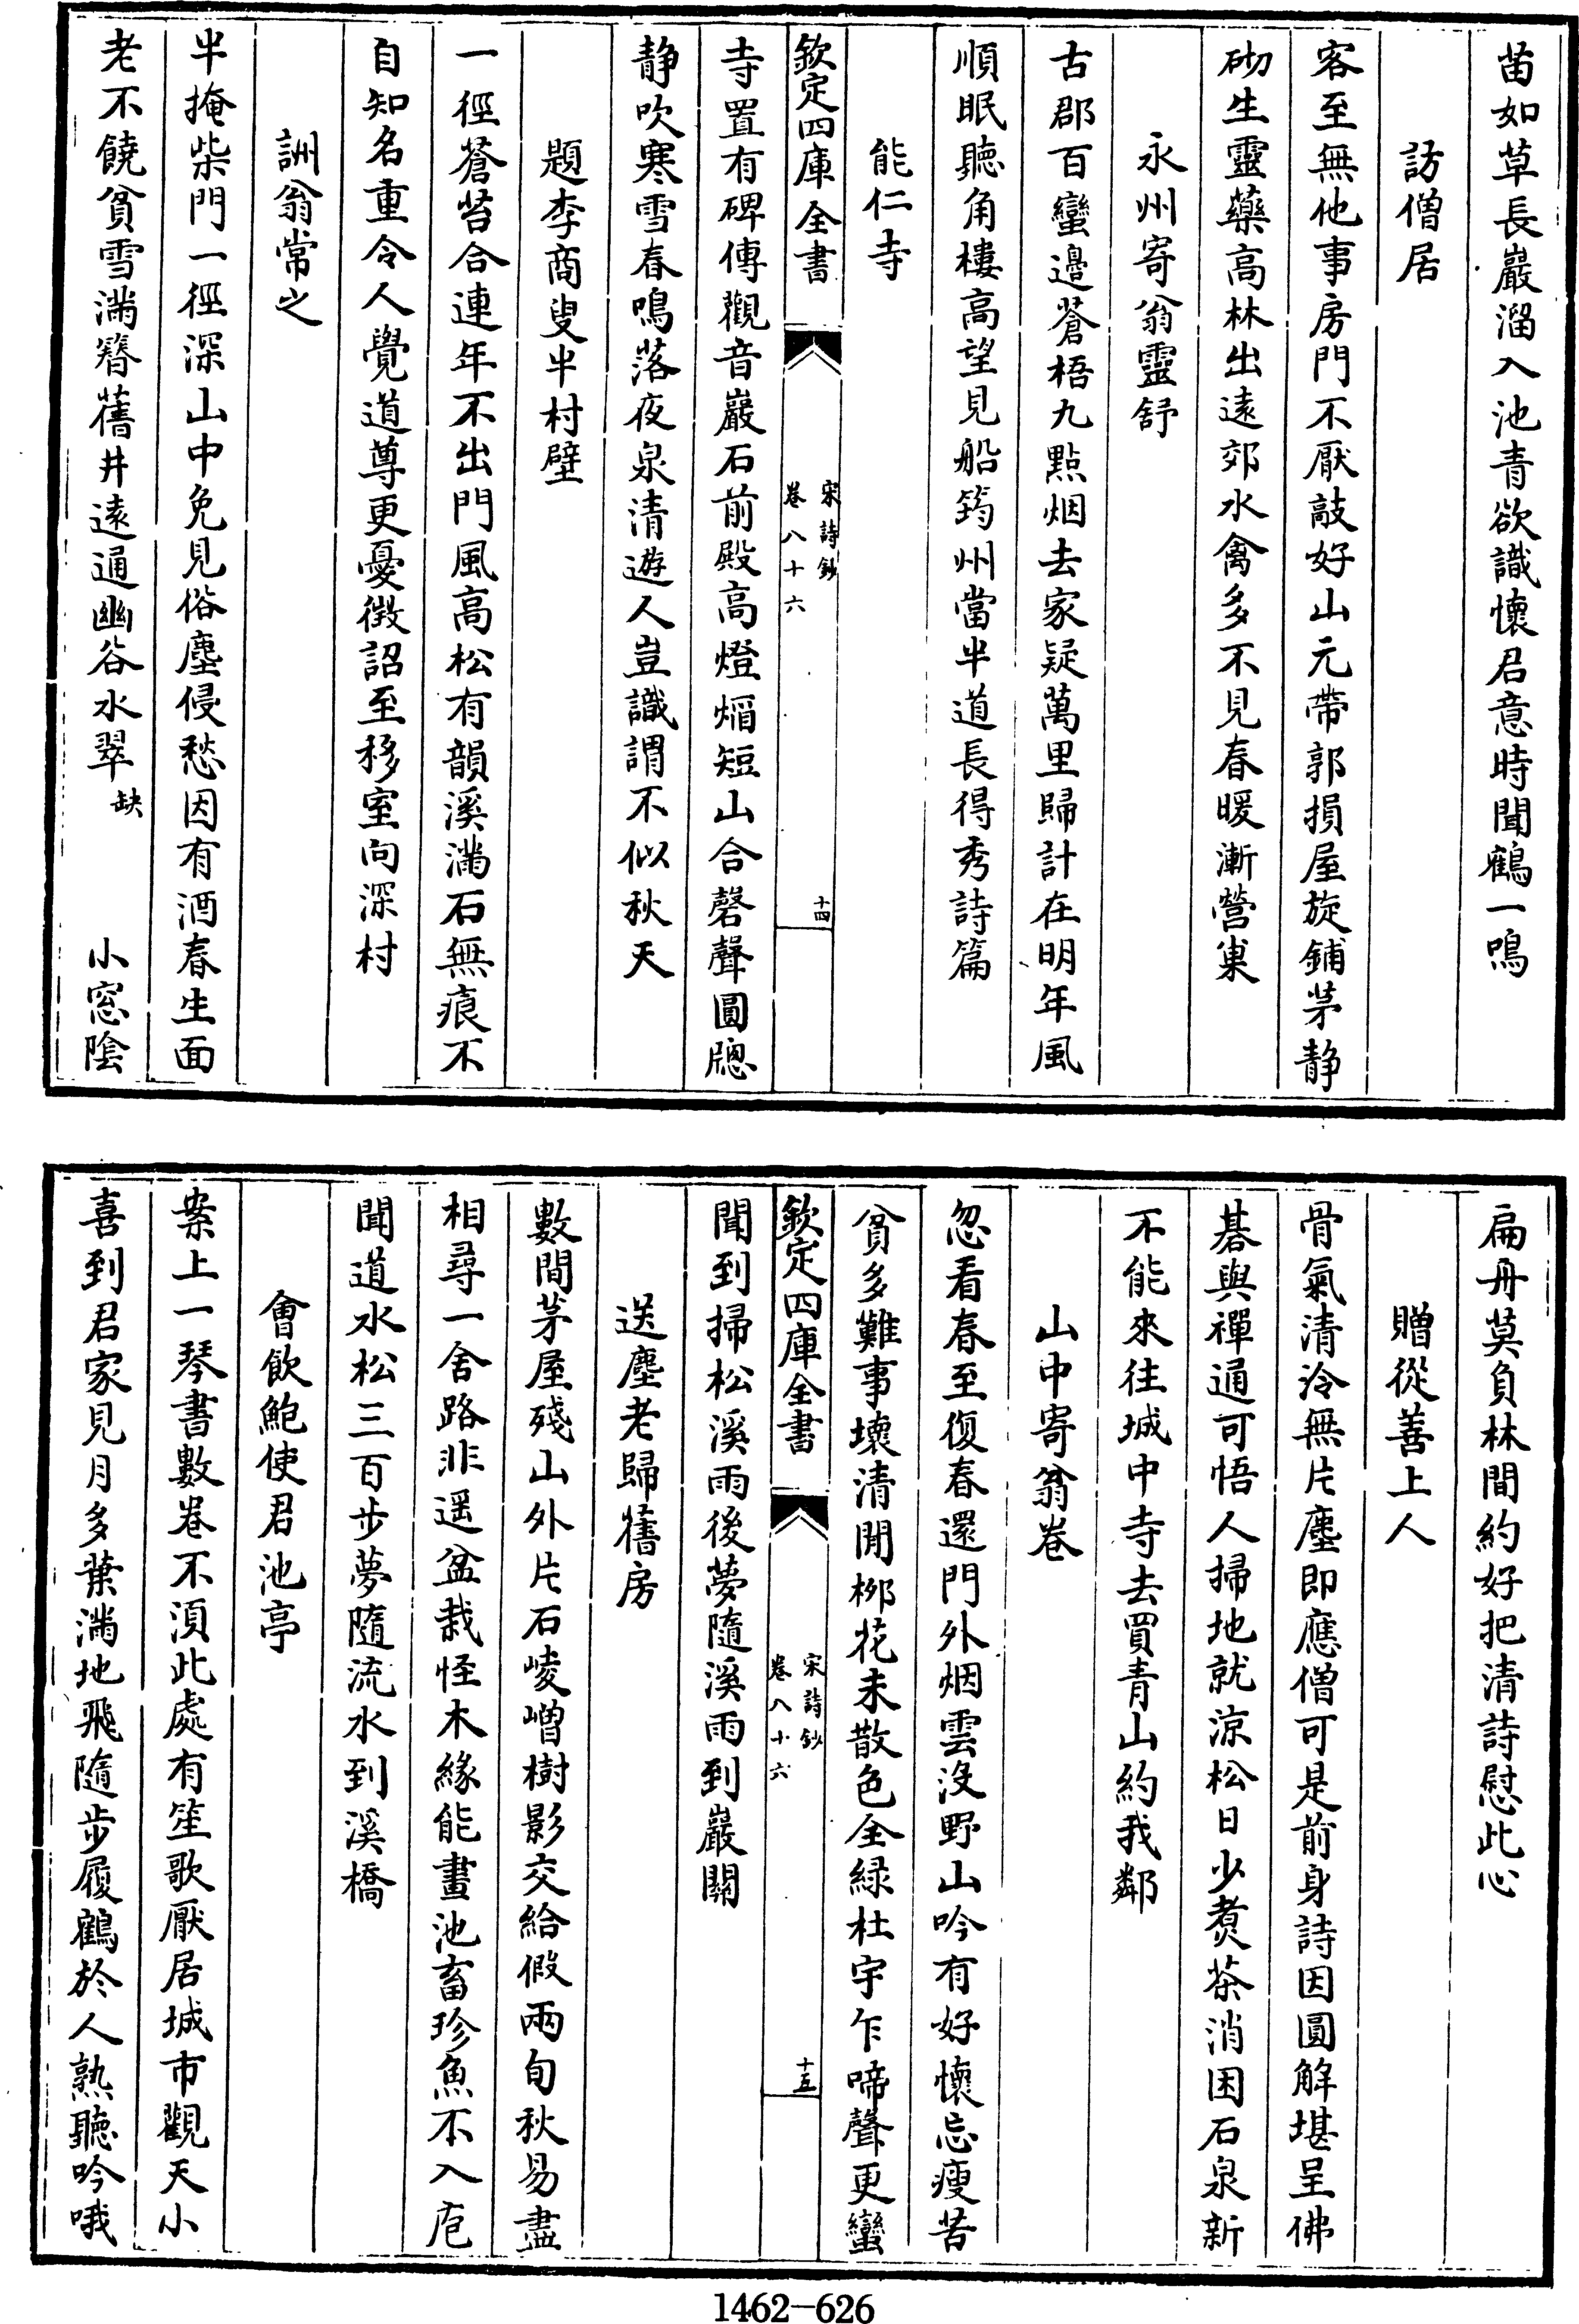 苗如草長巖溜入池青欲識懷君意時聞鶴一鳴
訪僧居
客至無他事房門不厭敲好山元帶郭損屋旋鋪茅静
砌生靈藥高林出遠郊水禽多不見春暖漸營巢
永州寄翁靈舒
古郡百蠻邊蒼梧九點烟去家疑萬里歸計在明年風
順眠聽角樓高望見船筠州當半道長得秀詩篇
能仁寺
欽定四庫全書
宋詩鈔
卷八十六
十四
寺置有碑傳觀音巖石前殿高燈燄短山合磬聲圓牕
静吹寒雪春鳴落夜泉清遊人豈識謂不似秋天
題李商叟半村壁
一徑蒼苔合連年不出門風高松有韻溪滿石無痕不
自知名重令人覺道尊更憂徴詔至移室向深村
詶翁常之
半掩柴門一徑深山中免見俗塵侵愁因有酒春生面
老不饒貧雪滿簪舊井遠通幽谷水翠缺 小窓陰
扁舟莫負林間約好把清詩慰此心
贈從善上人
骨氣清泠無片塵即應僧可是前身詩因圓解堪呈佛
棊與禪通可悟人掃地就涼松日少煑茶消困石泉新
不能來往城中寺去買青山約我鄰
山中寄翁卷
忽看春至復春還門外烟雲沒野山吟有好懷忘瘦苦
貧多難事壞清閒柳花未散色全緑杜宇乍啼聲更蠻
欽定四庫全書
宋詩鈔
卷八十六
十五
聞到掃松溪雨後夢隨溪雨到巖關
送塵老歸舊房
數間茅屋殘山外片石崚嶒樹影交給假兩旬秋易盡
相尋一舍路非遥盆栽怪木緣能畫池畜珍魚不入庖
聞道水松三百步夢隨流水到溪橋
會飲鮑使君池亭
案上一琴書數卷不須此處有笙歌厭居城市觀天小
喜到君家見月多葉滿地飛隨步履鶴於人熟聽吟哦
1462—626